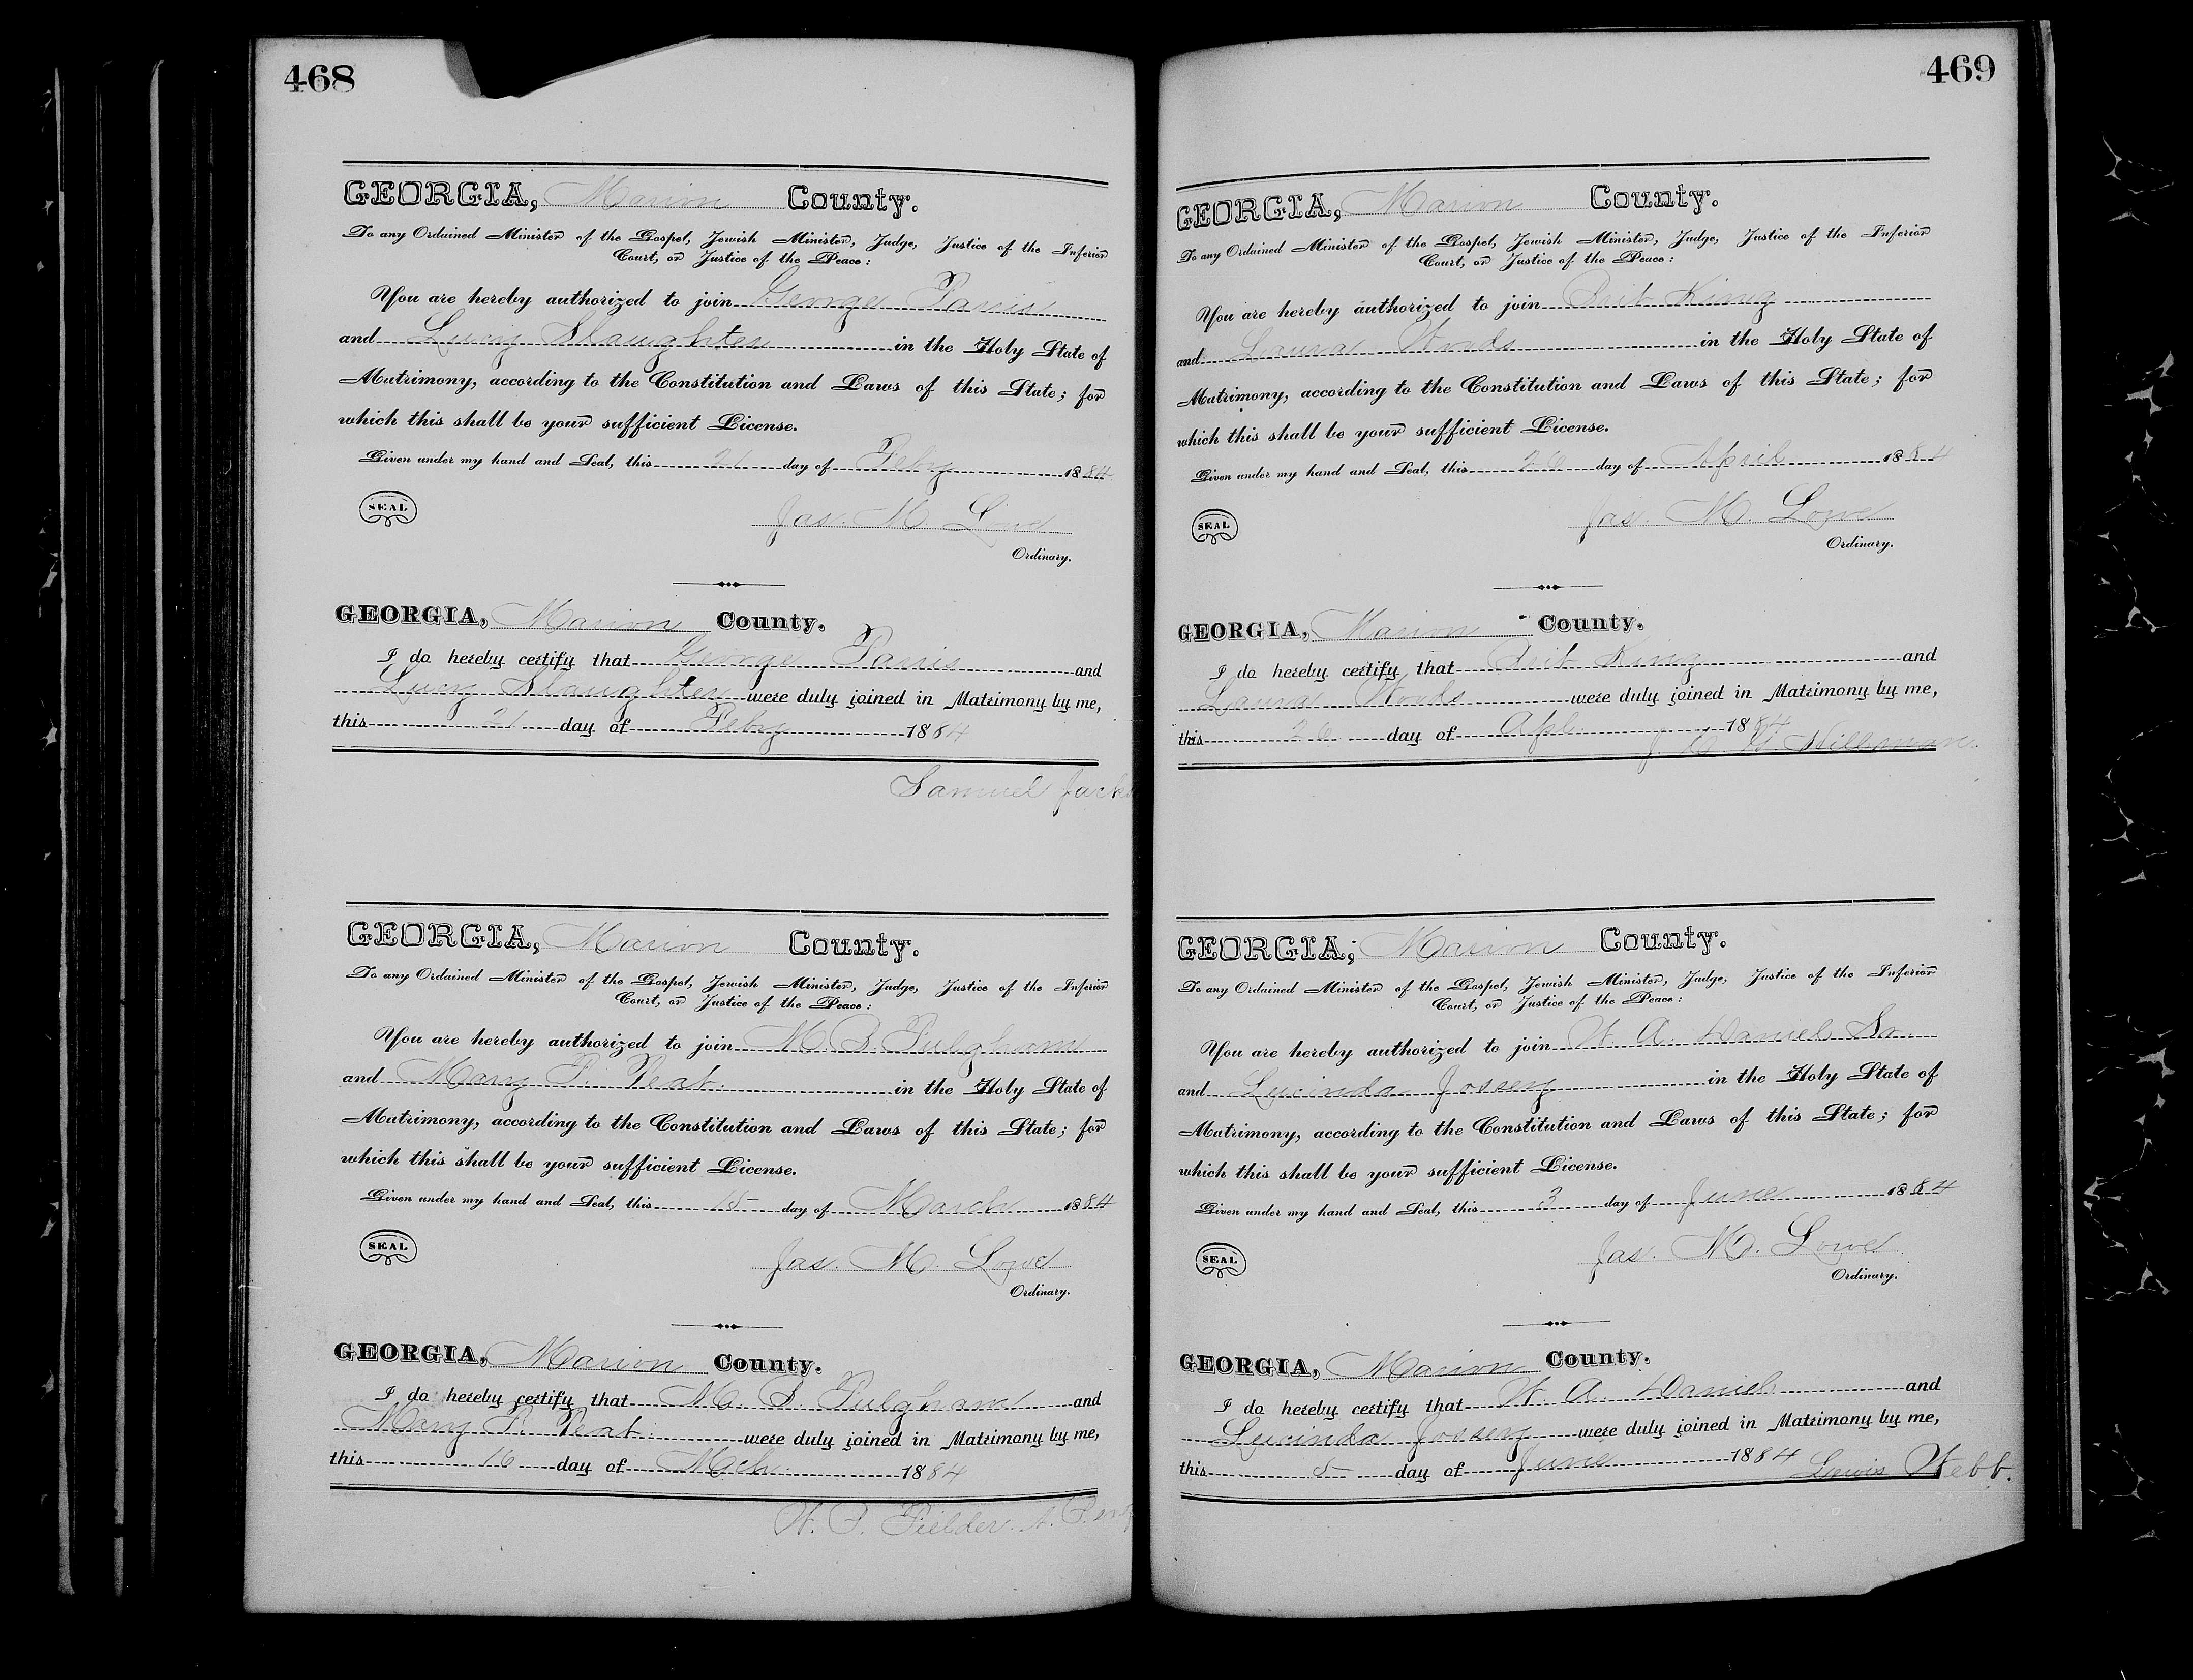 468
GEORGIA, Marion County.
To any Ordained Minister of the Gospel, Jewish Minister, Judge, Justice of the Inferior
Court, or Justice of the Peace:
You are hereby authorized to join George
and Lucy Slaughter in the Holy State of
Matrimony, according to the Constitution and Laws of this State; for
which this shall be your sufficient License.
Given under my hand and Seal, this 21 day of Feby 1884
SEAL
Jas. M. Lowe
Ordinary.
GEORGIA, Marion County.
I do hereby certify that George and
Lucy Slaughter were duly joined in Matrimony by me,
this 21 day of Feby 1884
Samuel
GEORGIA, Marion County.
To any Ordained Minister of the Gospel, Jewish Minister, Judge, Justice of the Inferior
Court, or Justice of the Peace:
You are hereby authorized to join M. S. Fulgham
and Mary F. Peat in the Holy State of
Matrimony, according to the Constitution and Laws of this State; for
which this shall be your sufficient License.
Given under my hand and Seal, this 15 day of March 1884
SEAL
Jas. M. Lowe
Ordinary.
GEORGIA, Marion County.
I do hereby certify that M. S. Fulgham and
Mary F. Peat were duly joined in Matrimony by me,
this 16 day of Mch 1884
W. P. Fielder
469
GEORGIA, Marion County.
To any Ordained Minister of the Gospel, Jewish Minister, Judge, Justice of the Inferior
Court, or Justice of the Peace:
You are hereby authorized to join King
and Laura Woods in the Holy State of
Matrimony, according to the Constitution and Laws of this State; for
which this shall be your sufficient License.
Given under my hand and Seal, this 26 day of April 1884
SEAL
Jas. M. Lowe
Ordinary.
GEORGIA, Marion County.
I do hereby certify that King and
Laura Woods were duly joined in Matrimony by me,
this 26 day of Apl. 1884
GEORGIA, Marion County.
To any Ordained Minister of the Gospel, Jewish Minister, Judge, Justice of the Inferior
Court, or Justice of the Peace:
You are hereby authorized to join W. A. Daniel Sr.
and Lucinda Jossey in the Holy State of
Matrimony, according to the Constitution and Laws of this State; for
which this shall be your sufficient License.
Given under my hand and Seal, this 3 day of June 1884
SEAL
Jas. M. Lowe
Ordinary.
GEORGIA, Marion County.
I do hereby certify that W. A. Daniel and
Lucinda Jossey were duly joined in Matrimony by me,
this 5 day of June 1884
Lewis Webb.